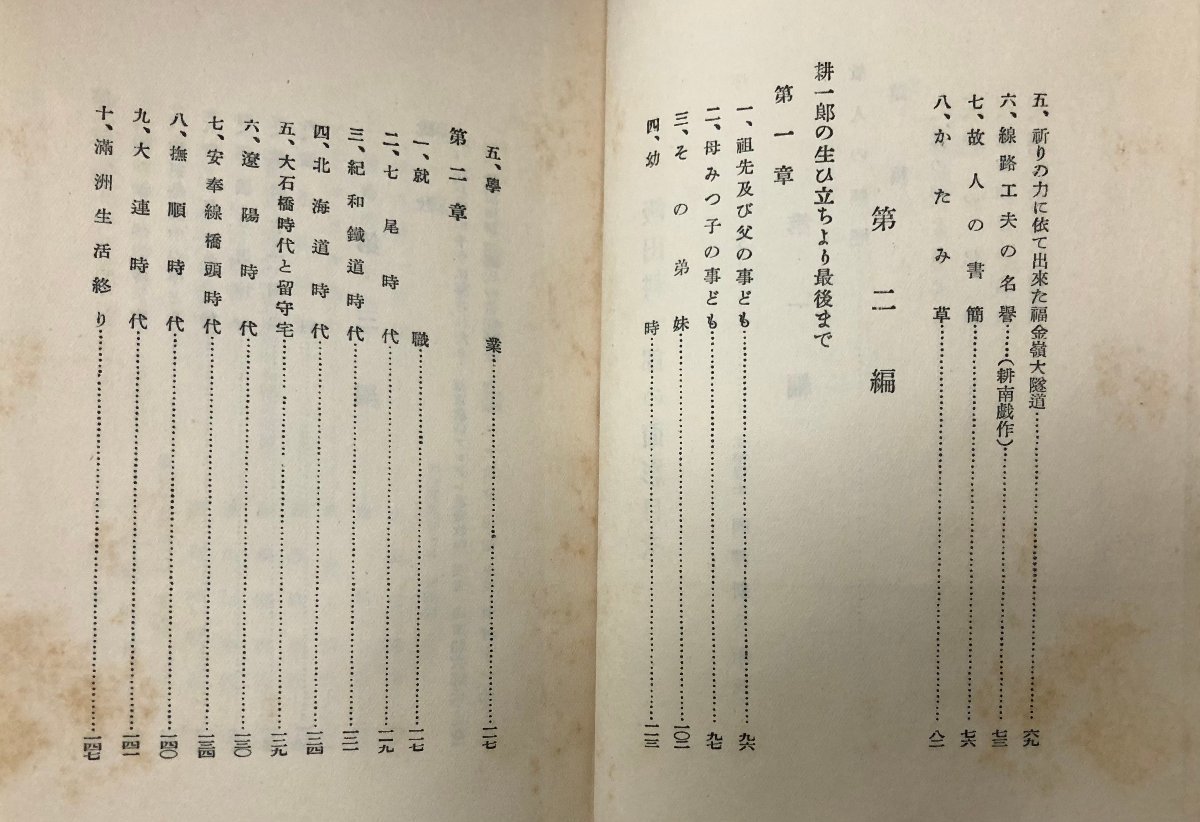 五、祈りの力に依て出來た福金嶺大隧道……六九
六、線路工夫の名譽……(耕南戲作)……七三
七、故人の書簡……七六
八、かたみ草……八二
第二編
耕一郎の生ひ立ちより最後まで
第一章
一、祖先及び父の事ども……九六
二、母みつ子の事ども……九七
三、その弟妹……一〇二
四、幼時……一一三
五、學業……一一七
第二章
一、就職……一一七
二、七尾時代……一一九
三、紀和鐵道時代……一二一
四、北海道時代……一二四
五、大石橋時代と留守宅……一二九
六、遼陽時代……一三〇
七、安奉線橋頭時代……一三四
八、撫順時代……一四〇
九、大連時代……一四一
十、滿洲生活終り……一四七